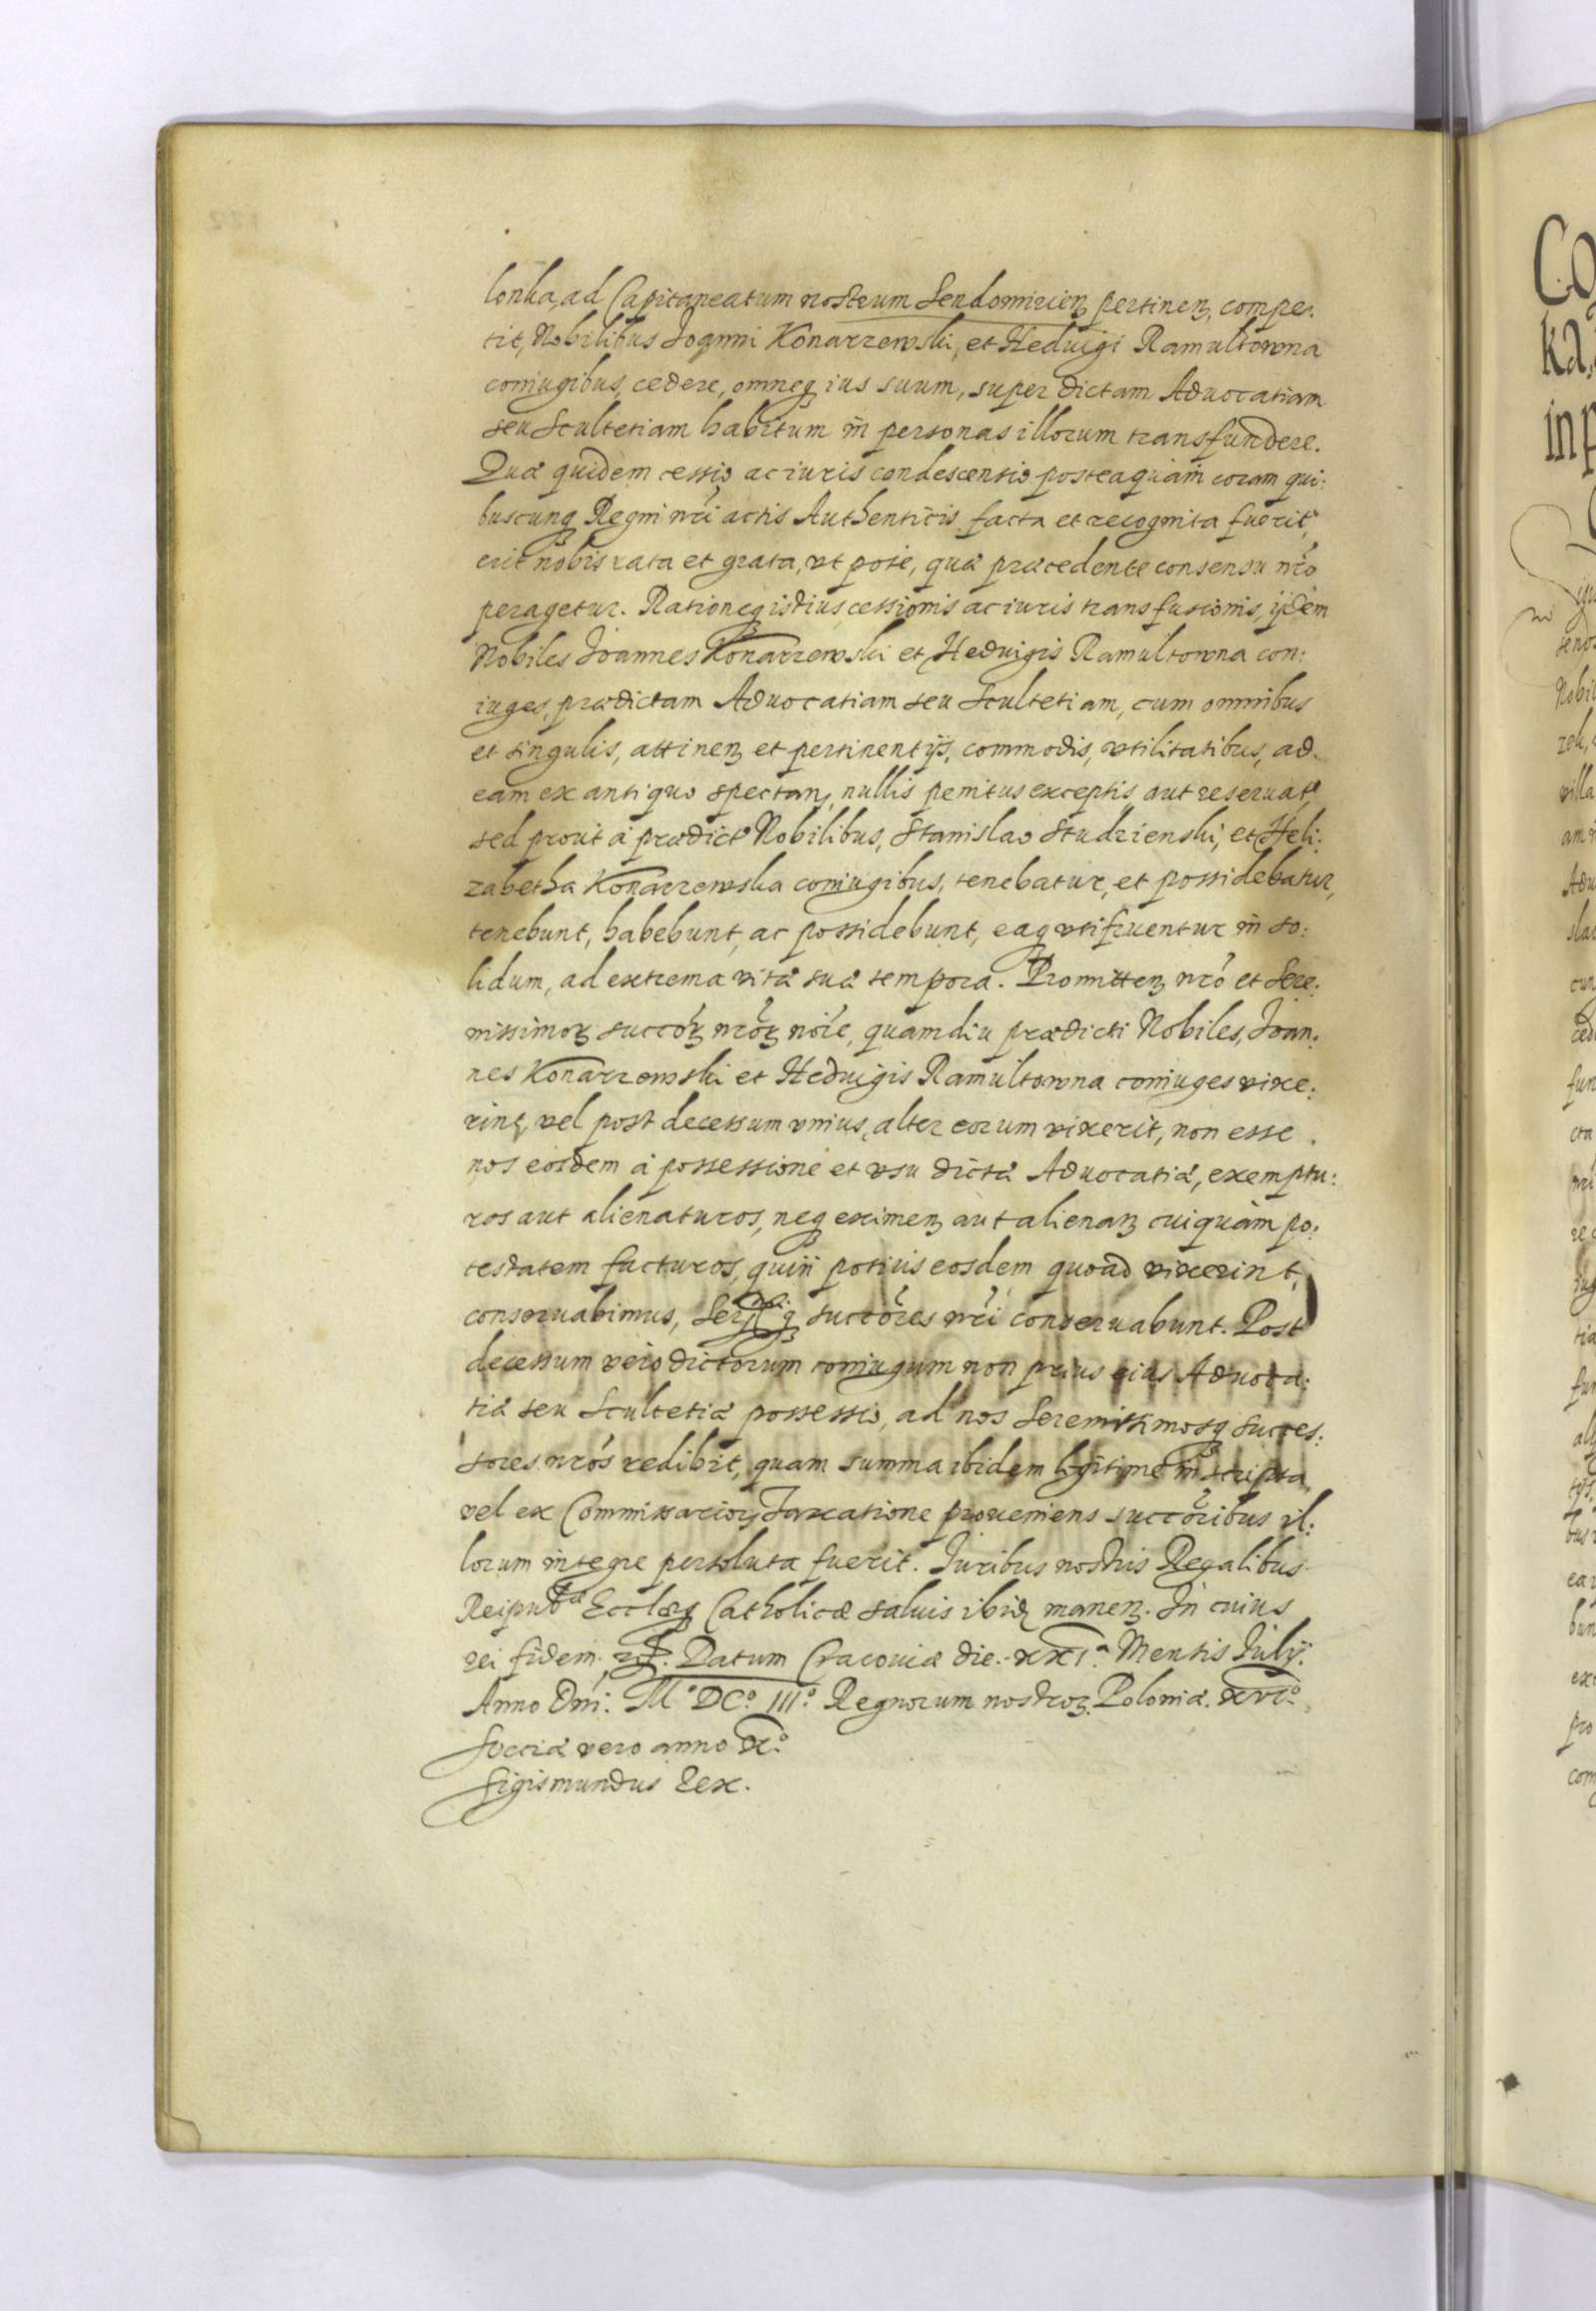 lonka, ad Capitaneatum nostrum Sendomirien pertinen, compe:
tit, Nobilibus Joanni Konarzewski, et Heduigi Ramultowna
coniugibus, cedere, omneq ius suum, super dictam Aduocatiam
seu Scultetiam habitum in personas illorum transfundere.
Quæ quidem cessio ac iuris condescensio posteaquam coram qui:
buscunq Regni nri actis Authenticis facta et recognita fuerit,
erit nobis rata et grata, vt pote, quæ præcedente consensu nro
peragetur. Rationeq istius cessionis ac iuris transfusionis, ijdem
Nobiles Joannes Konarzewski et Heduigis Ramultowna con:
iuges, prædictam Aduocatiam seu Scultetiam, cum omnibus
et singulis, attinen et pertinentijs, commodis, vtilitatibus, ad
eam ex antiquo spectan, nullis penitus exceptis aut reseruat,
sed prout à prædict Nobilibus, Stanislao Studzienski, et Heli:
zabetha Konarzewska coniugibus, tenebatur, et possidebatur,
tenebunt, habebunt, ac possidebunt, eaq vtifruentur in so:
lidum, ad extrema vitæ suæ tempora. Promitten nro et Sere:
nissimor succor nror noie, quamdiu prædicti Nobiles, Joan:
nes Konarzewski et Heduigis Ramultowna coniuges vixe:
rint, vel post decessum vnius, alter eorum vixerit, non esse
nos eosdem à possessione et vsu dictæ Aduocatiæ, exemptu:
ros aut alienaturos, neq eximen aut alienan cuiquam po:
testatem facturos, quin potius eosdem quoad vixerint,
conseruabimus, Serq succores nri conseruabunt. Post
decessum vero dictorum coniugum non prius eius Aduoca:
tiæ seu Scultetiæ possessio, ad nos Serenissimosq succes:
sores nros redibit, quam summa ibidem legitime inscripta,
vel ex Commissarior Taxatione proueniens succoribus il:
lorum integre persoluta fuerit. Juribus nostris Regalibus
Reipub Eccl Catholicæ saluis ibid manen. In cuius
rei fidem. Datum Cracouiæ die. XXIª Mensis Julij.
Anno Dni: Mº DCº IIIº Regnorum nostror Poloniæ. XVIº
Sueciæ vero anno Xº
Sigismundus Rex.